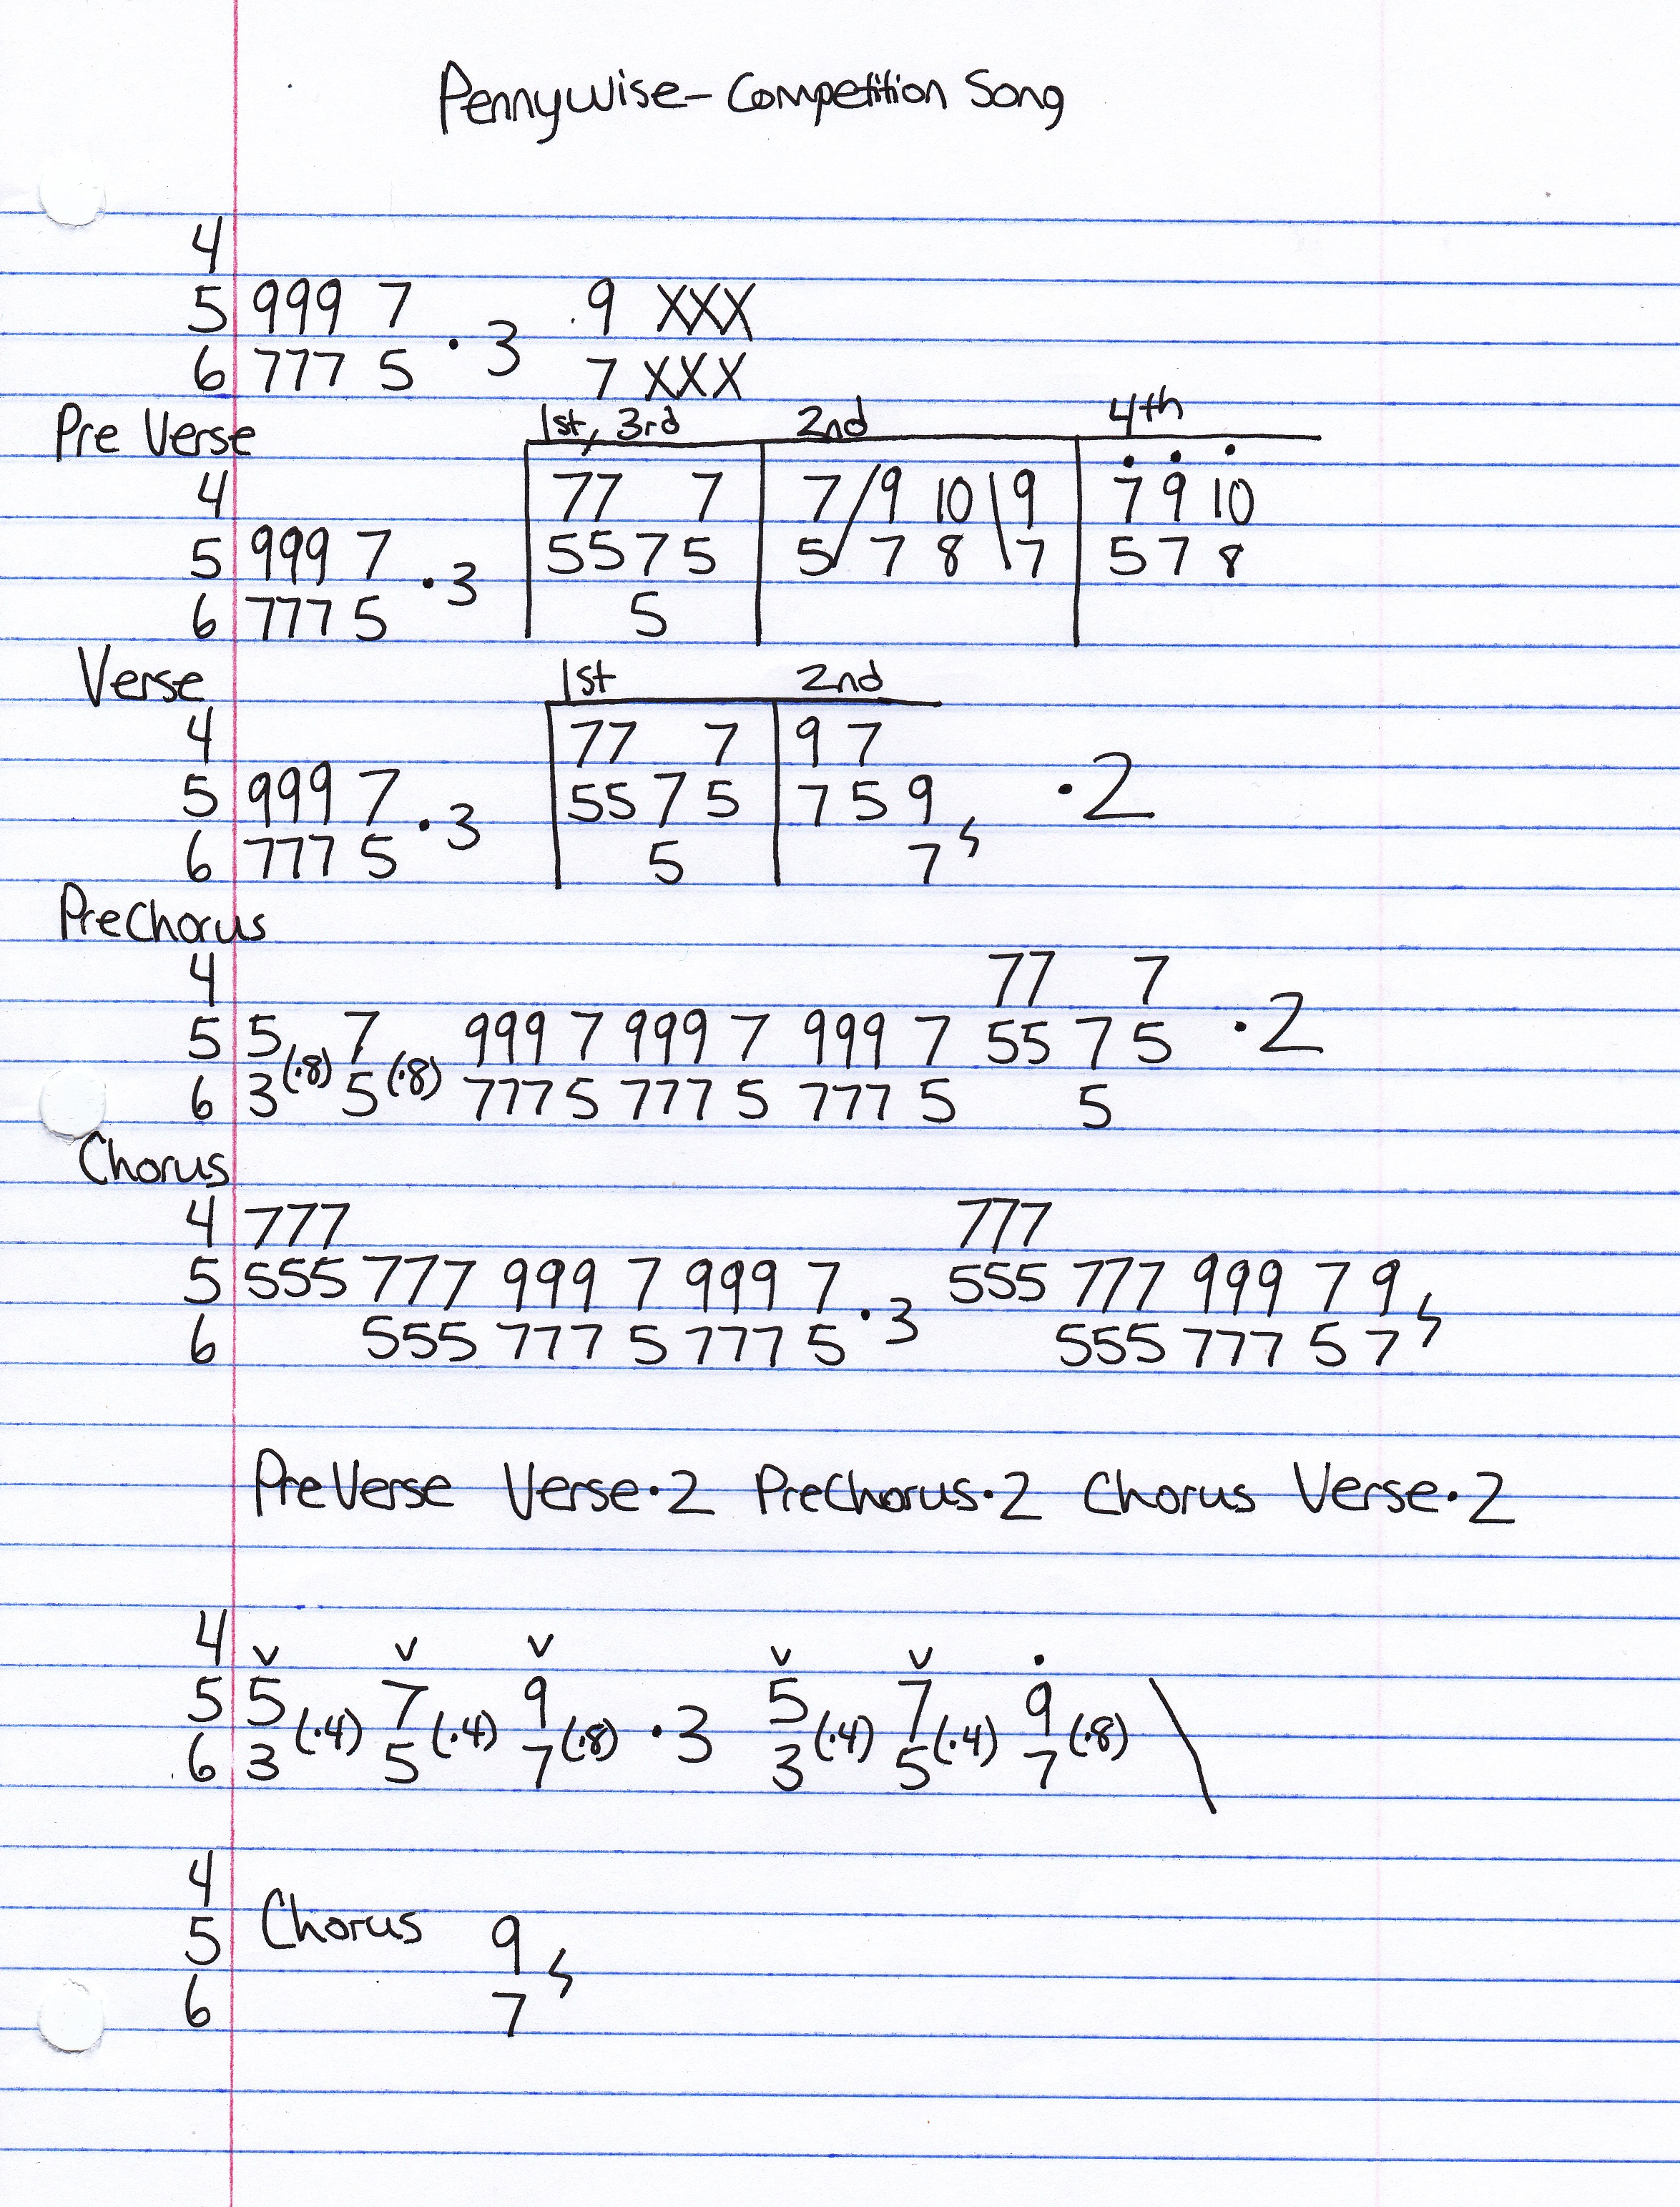 Pennywise - Competition Song
4
5 999 7 ·3 9 XXX
6 777 5 7 XXX
Pre Verse 1st, 3rd 2nd 4th
4 77 7 7/9 10\9 7 9 10
5 999 7 ·3 5575 5/7 8\7 5 7 8
6 777 5 5
Verse 1st 2nd
4 77 7 9 7
5 999 7 ·3 55 7 5 7 5 9 ·2
6 777 5 5 7
PreChorus
4 77 7
5 5 (·8) 7 (·8) 999 7 999 7 999 7 55 7 5 ·2
6 3 5 777 5 777 5 777 5 5
Chorus
4 777 777
5 555 777 999 7 999 7 ·3 555 777 999 7 9
6 555 777 5 777 5 555 777 5 7
PreVerse Verse·2 PreChorus·2 Chorus Verse·2
4 v v v v v ·
5 5 (·4) 7 (·4) 9 (·8) ·3 5 (·4) 7 (·4) 9 (·8) \
6 3 5 7 3 5 7
4
5 Chorus 9
6 7